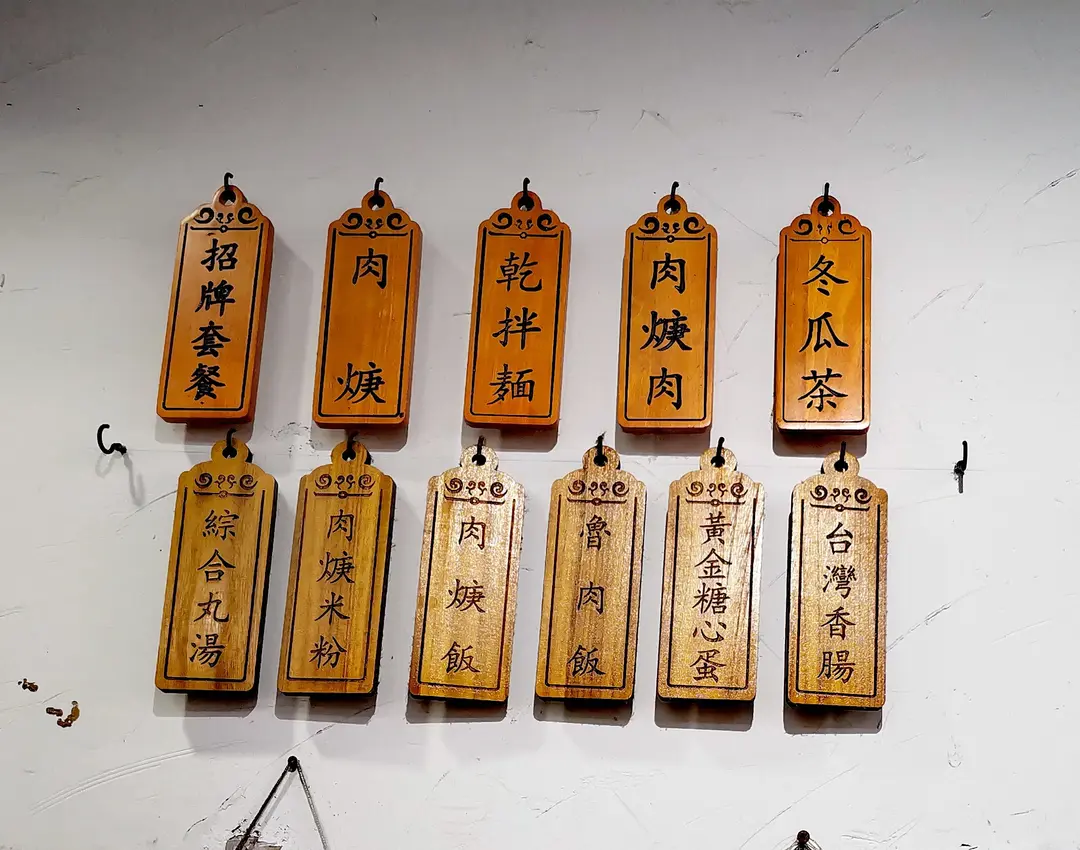 招牌套餐
肉焿
乾拌麵
肉焿肉
冬瓜茶
綜合丸湯
肉焿米粉
肉焿飯
魯肉飯
黃金糖心蛋
台灣香腸